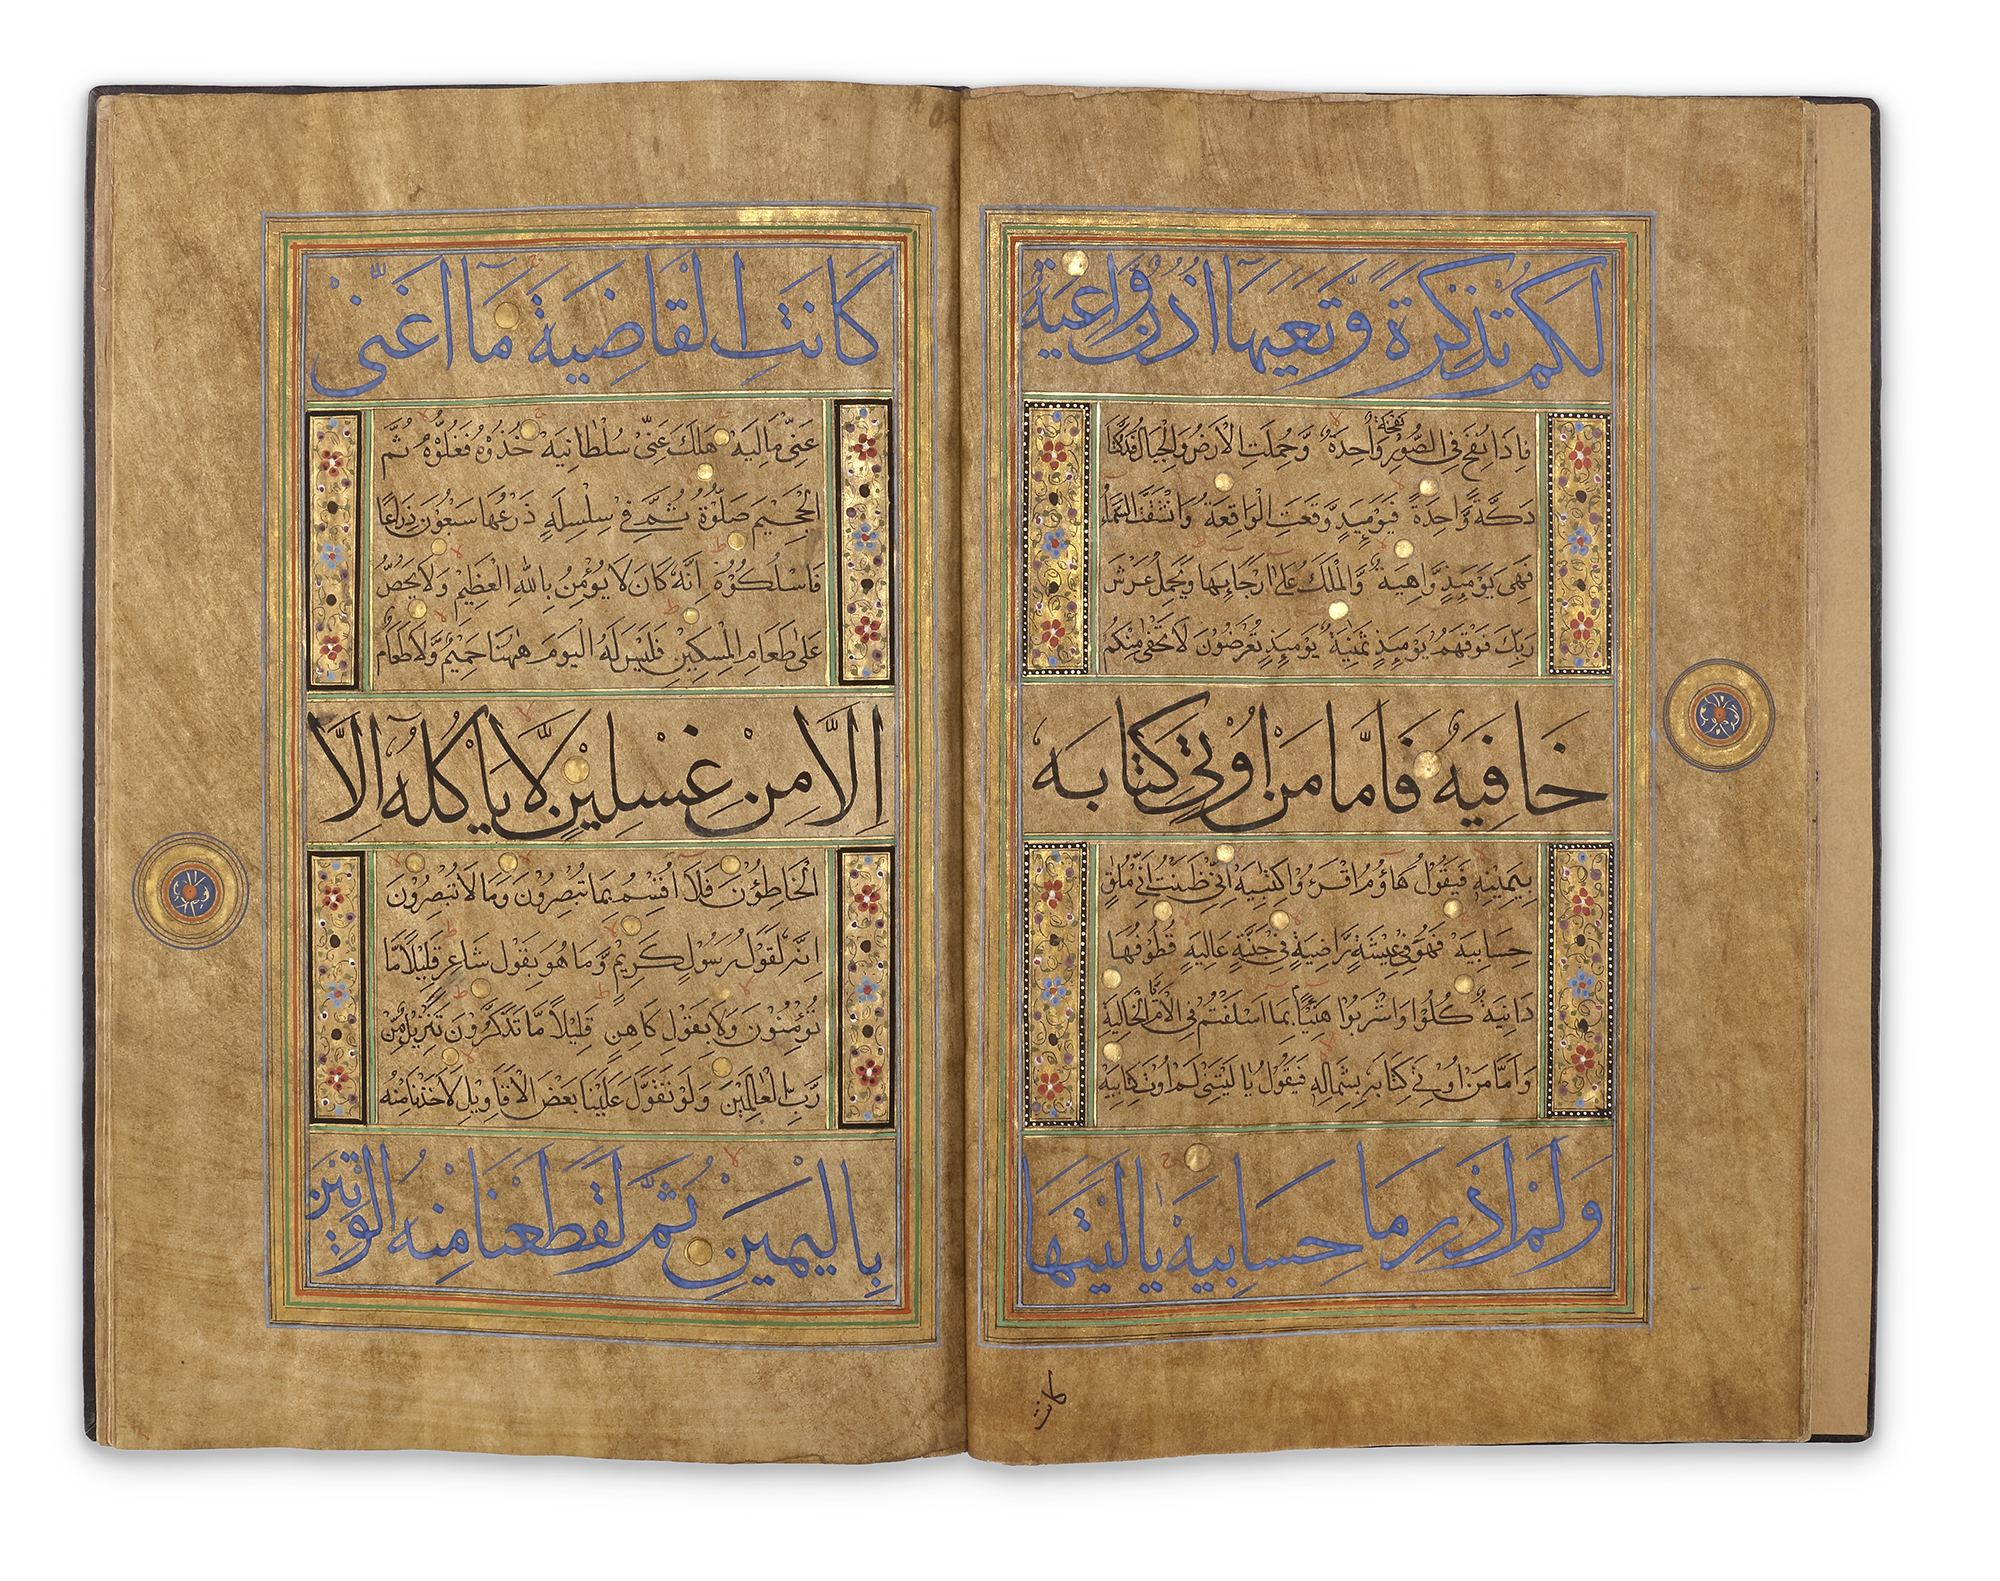 لَكُمْ تَذْكِرَةً وَّتَعِيَهَآ اُذُنٌ وَّاعِيَةٌ
فَاِذَا نُفِخَ فِى الصُّوْرِ نَفْخَةٌ وَّاحِدَةٌ وَّحُمِلَتِ الْاَرْضُ وَالْجِبَالُ فَدُكَّتَا
دَكَّةً وَّاحِدَةً فَيَوْمَئِذٍ وَّقَعَتِ الْوَاقِعَةُ وَانْشَقَّتِ السَّمَآءُ
فَهِىَ يَوْمَئِذٍ وَّاهِيَةٌ وَّالْمَلَكُ عَلٰى اَرْجَآئِهَا وَيَحْمِلُ عَرْشَ
رَبِّكَ فَوْقَهُمْ يَوْمَئِذٍ ثَمٰنِيَةٌ يَوْمَئِذٍ تُعْرَضُوْنَ لَا تَخْفٰى مِنْكُمْ
خَافِيَةٌ فَاَمَّا مَنْ اُوْتِىَ كِتَابَهٗ
بِيَمِيْنِهٖ فَيَقُوْلُ هَآؤُمُ اقْرَءُوْا كِتٰبِيَهْ اِنِّىْ ظَنَنْتُ اَنِّىْ مُلٰقٍ
حِسَابِيَهْ فَهُوَ فِىْ عِيْشَةٍ رَّاضِيَةٍ فِىْ جَنَّةٍ عَالِيَةٍ قُطُوْفُهَا
دَانِيَةٌ كُلُوْا وَاشْرَبُوْا هَنِيْٓئًا بِمَآ اَسْلَفْتُمْ فِى الْاَيَّامِ الْخَالِيَةِ
وَاَمَّا مَنْ اُوْتِىَ كِتَابَهٗ بِشِمَالِهٖ فَيَقُوْلُ يَا لَيْتَنِىْ لَمْ اُوْتَ كِتَابِيَهْ
وَلَمْ اَدْرِ مَا حِسَابِيَهْ يَا لَيْتَهَا
كانت
كَانَتِ الْقَاضِيَةَ مَآ اَغْنٰى
عَنِّىْ مَالِيَهْ هَلَكَ عَنِّىْ سُلْطَانِيَهْ خُذُوْهُ فَغُلُّوْهُ ثُمَّ
الْجَحِيْمَ صَلُّوْهُ ثُمَّ فِىْ سِلْسِلَةٍ ذَرْعُهَا سَبْعُوْنَ ذِرَاعًا
فَاسْلُكُوْهُ اِنَّهٗ كَانَ لَا يُؤْمِنُ بِاللّٰهِ الْعَظِيْمِ وَلَا يَحُضُّ
عَلٰى طَعَامِ الْمِسْكِيْنِ فَلَيْسَ لَهُ الْيَوْمَ هٰهُنَا حَمِيْمٌ وَّلَا طَعَامٌ
اِلَّا مِنْ غِسْلِيْنٍ لَّا يَاْكُلُهٗٓ اِلَّا
الْخَاطِؤُنَ فَلَآ اُقْسِمُ بِمَا تُبْصِرُوْنَ وَمَا لَا تُبْصِرُوْنَ
اِنَّهٗ لَقَوْلُ رَسُوْلٍ كَرِيْمٍ وَّمَا هُوَ بِقَوْلِ شَاعِرٍ قَلِيْلًا مَّا
تُؤْمِنُوْنَ وَلَا بِقَوْلِ كَاهِنٍ قَلِيْلًا مَّا تَذَكَّرُوْنَ تَنْزِيْلٌ مِّنْ
رَّبِّ الْعٰلَمِيْنَ وَلَوْ تَقَوَّلَ عَلَيْنَا بَعْضَ الْاَقَاوِيْلِ لَاَخَذْنَا مِنْهُ
بِالْيَمِيْنِ ثُمَّ لَقَطَعْنَا مِنْهُ الْوَتِيْنَ